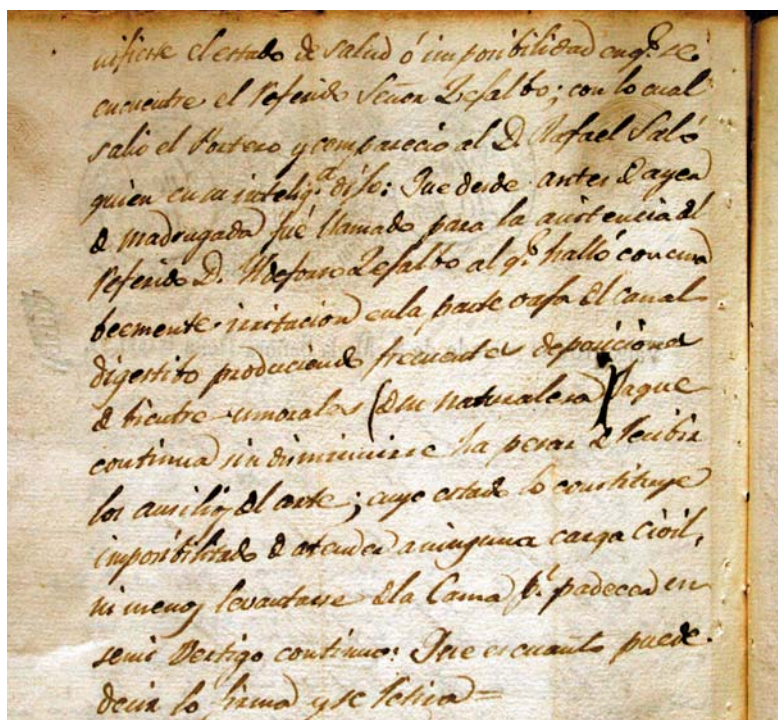 nifieste el estado de salud ó imposibilidad en q.e se
encuentre el referido Señor Zefalbo; con lo cual
salio el Portero y comparecio al D. Rafael Saló
quien en su intelig.a dijo: Que desde antes de ayer
de madrugada fué llamado para la asistencia del
referido D. Ildefonso Zefalbo al q.e halló con una
beemente irritacion en la parte baja del canal
digestibo produciendo frecuentes deposiciones
de bientre umorales (de su naturaleza) la que
continua sin disminuirse ha pesar de recibir
los ausilios del arte; cuyo estado lo constituye
imposibilitado de atender a ninguna carga cioil,
ni menos levantarse de la Cama p.r padecer un
semi vertigo continuo: Que es cuanto puede
decir lo firma y se retira =